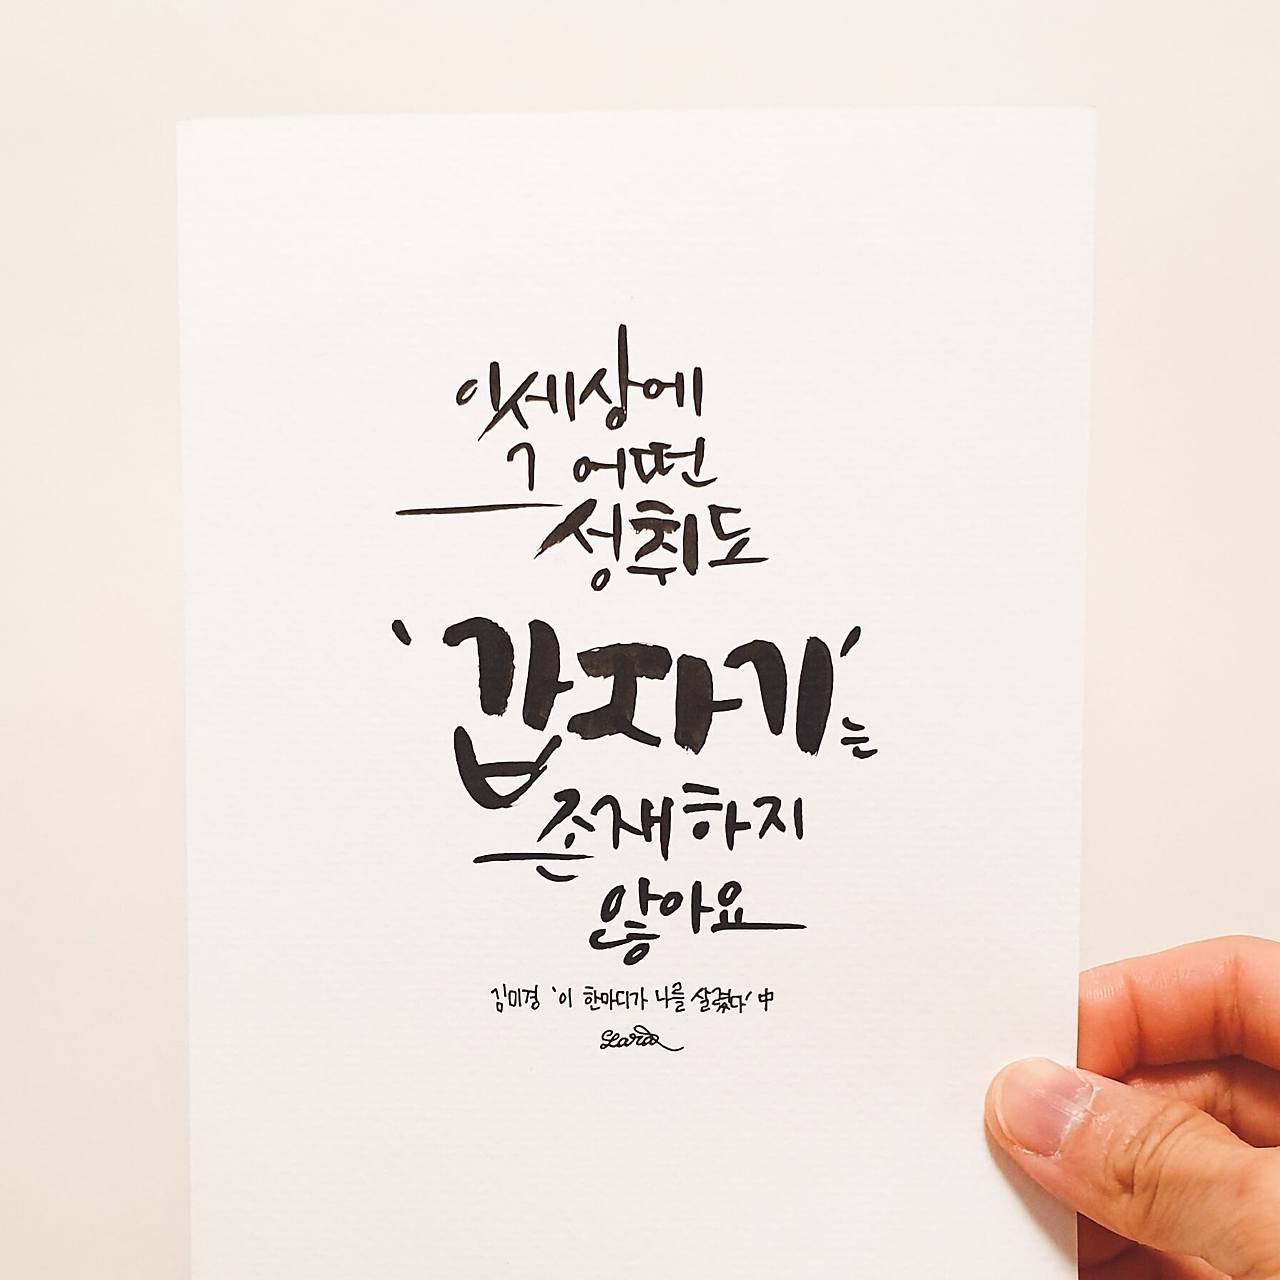 이 세상에
그 어떤
성취도
'갑자기'는
존재하지
않아요
김미경 '이 한마디가 나를 살렸다' 中